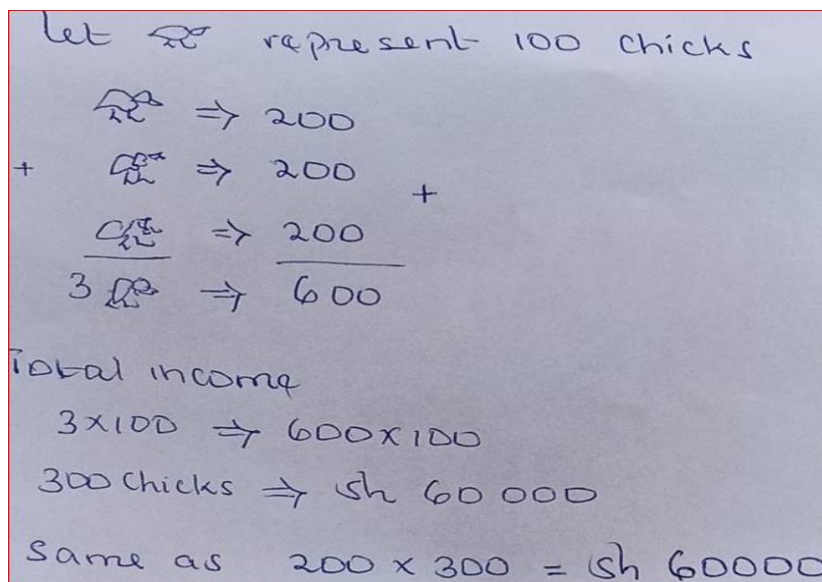 Let represent 100 chicks
⇒ 200
+ ⇒ 200 +
⇒ 200
3 ⇒ 600
Total income
3 × 100 ⇒ 600 × 100
300 chicks ⇒ sh 60 000
same as 200 × 300 = sh 60000